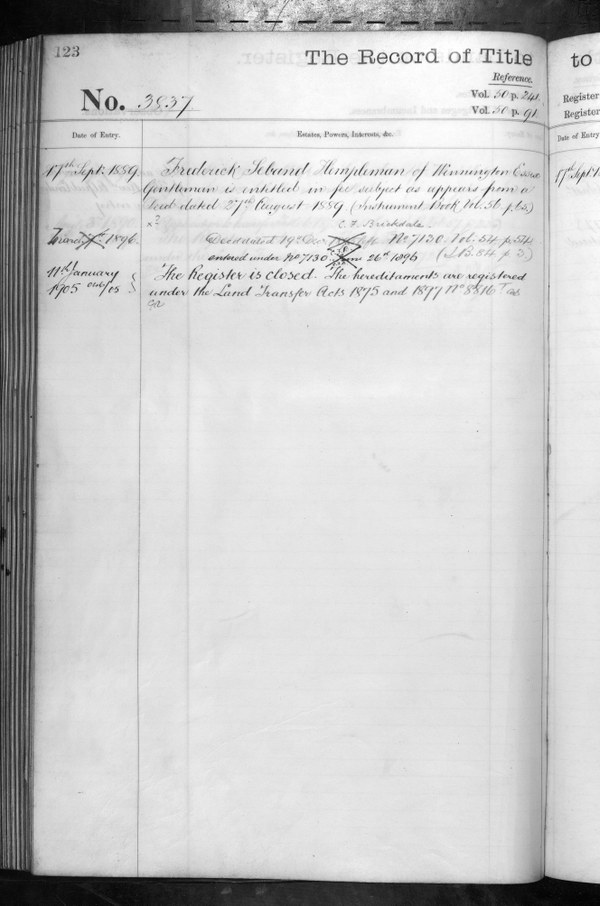 123
The Record of Title
to
Reference.
No. 3837
Vol. 50 p. 241.
Vol. 50 p. 91
Register
Register
Date of Entry.
Estates, Powers, Interests, &c.
Date of Entry
17th Sept. 1889.
Frederick Hempleman of Wennington Essex
17th Sept. 1
Gentleman is entitled in fee subject as appears from a
deed dated 27th August 1889. (Instrument Book Vol. 50. p. 62.)
x?
C. F. Brickdale.
1896.
Deed dated 19 Decr No. 7130. Vol. 54 p. 54
entered under No. 7130. 26th 1896
11th January
The Register is closed. The hereditaments are registered
1905
under the Land Transfer Acts 1875 and 1897 No. 8816